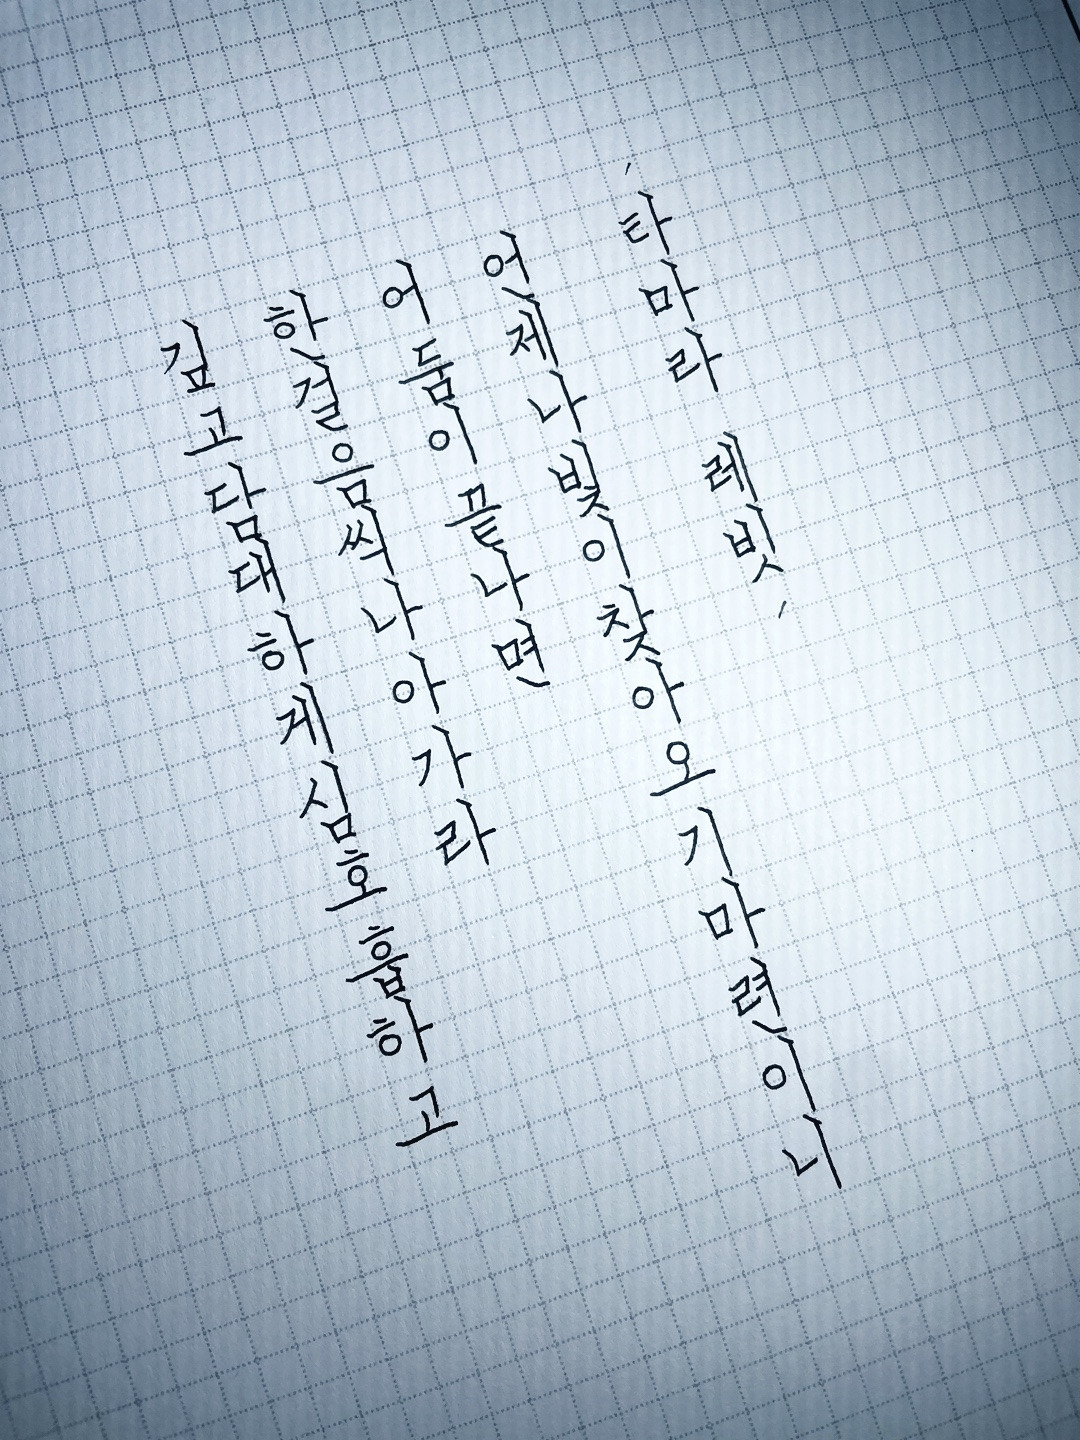 깊고담대하게심호흡하고
한걸음씩나아가라
어둠이끝나면
언제나빛이찾아오기마련이니
'타마라 레빗'